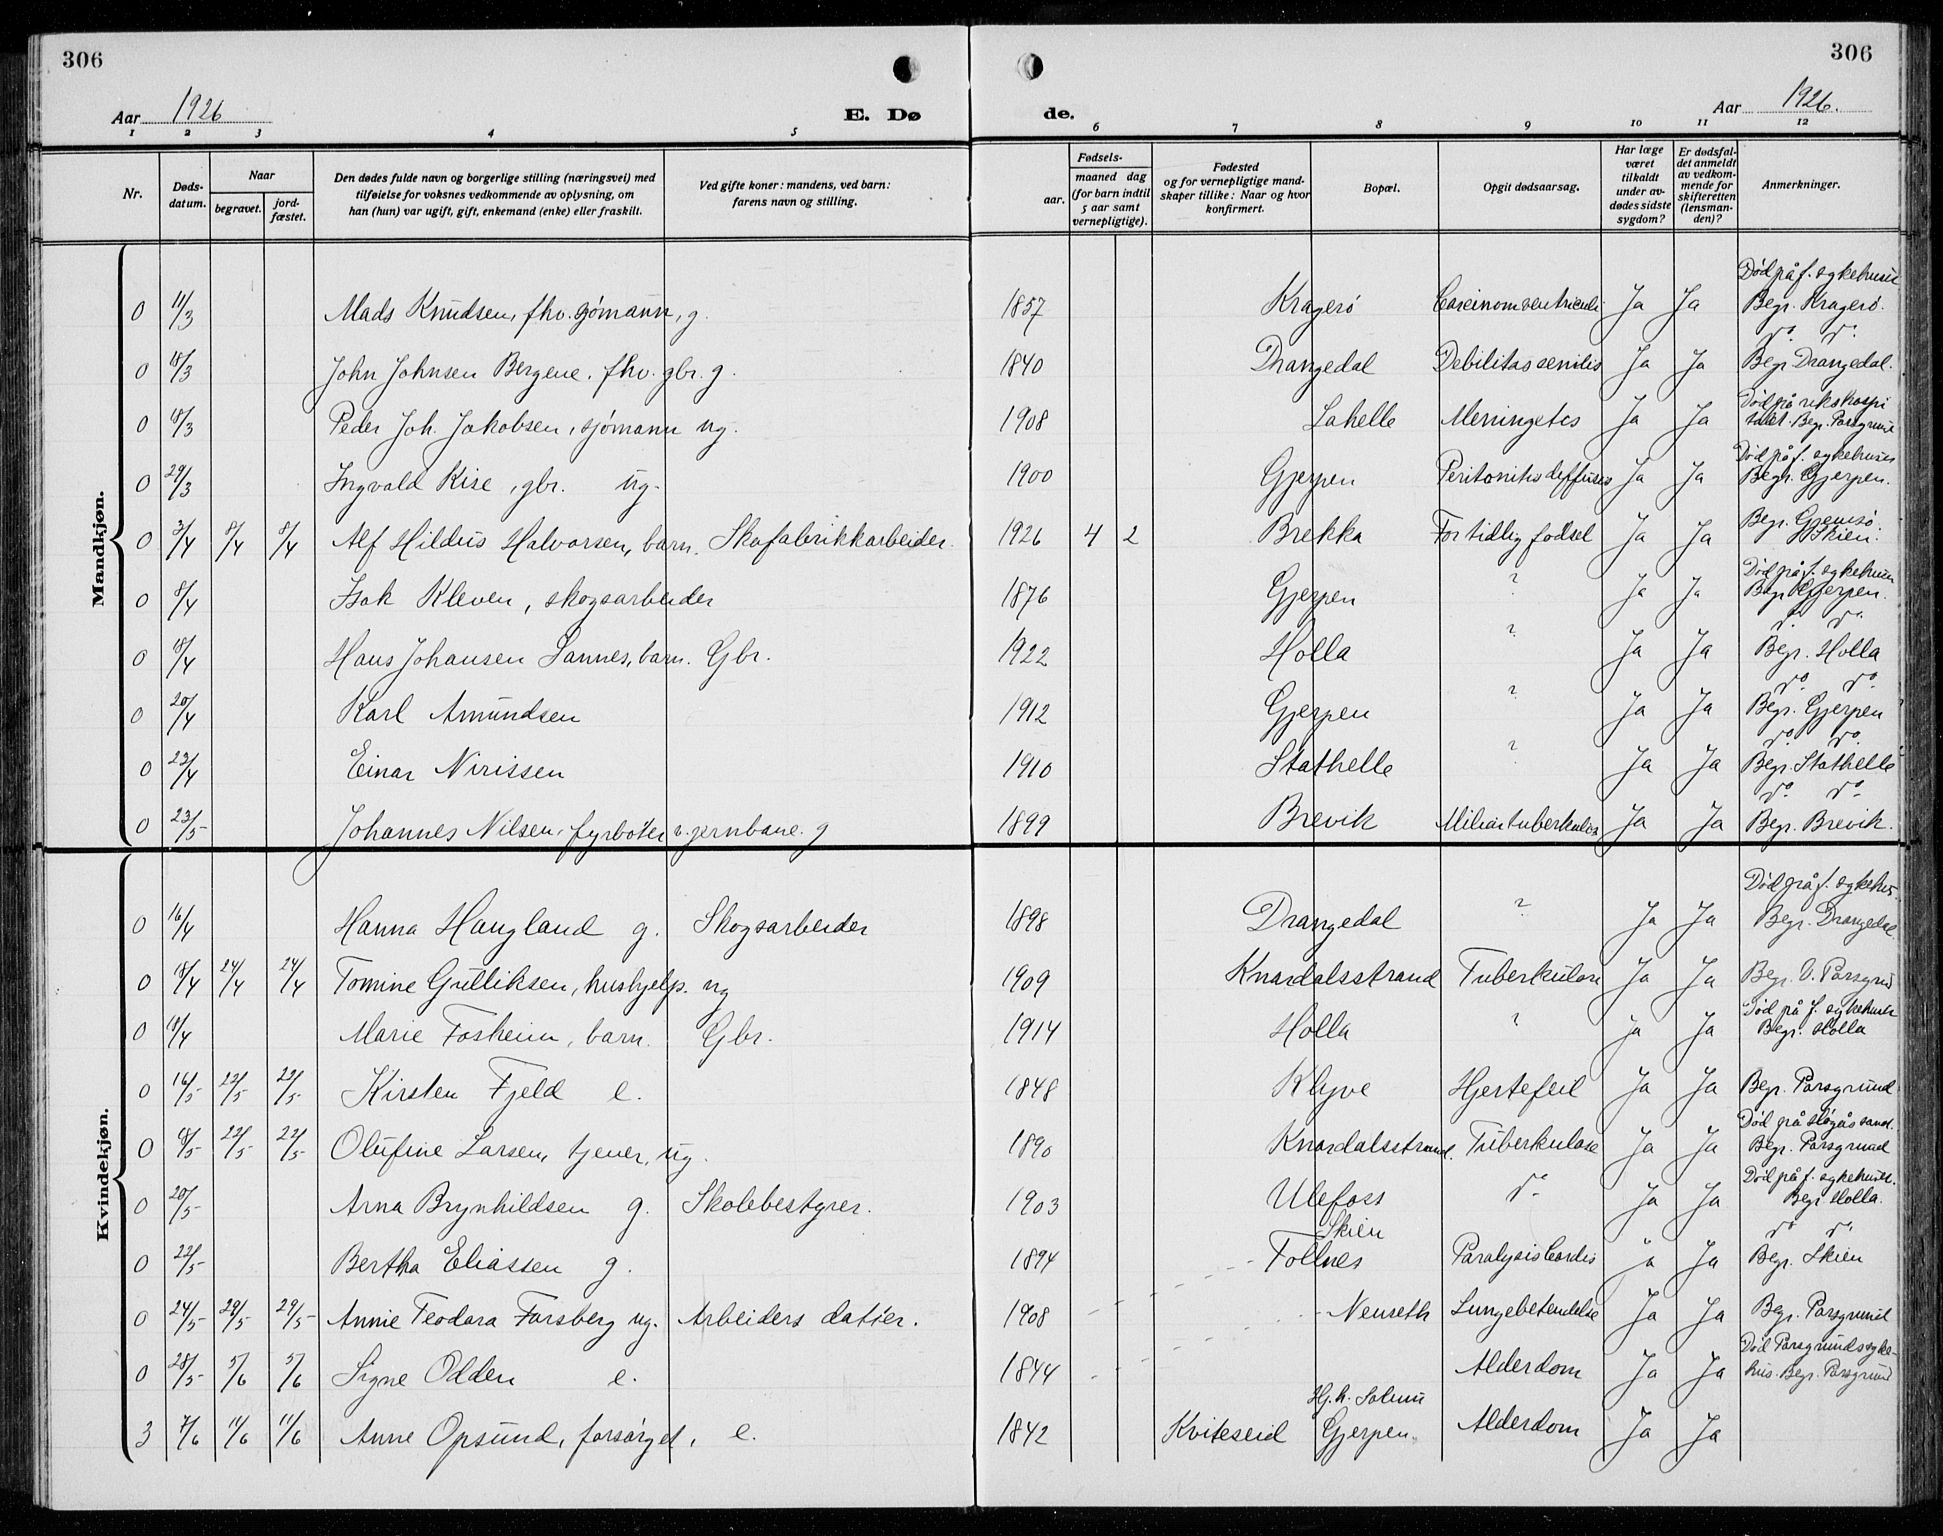 306
306
Aar 1926
E. Dø
de.
Aar 1926.
1 2 3 4 5 6 7 8 9 10 11 12
Nr.
Døds-
datum.
Naar
begravet.
jord-
fæstet.
Den dødes fulde navn og borgerlige stilling (næringsvei) med
tilføielse for voksnes vedkommende av oplysning, om
han (hun) var ugift, gift, enkemand (enke) eller fraskilt.
Ved gifte koner: mandens, ved barn:
farens navn og stilling.
Fødsels-
aar.
maaned dag
(for barn indtil
5 aar samt
vernepligtige).
Fødested
og for vernepligtige mand-
skaper tillike: Naar og hvor
konfirmert.
Bopæl.
Opgit dødsaarsag.
Har læge
været
tilkaldt
under av-
dødes sidste
sygdom?
Er dødsfal-
det anmeldt
av vedkom-
mende for
skifteretten
(lensman-
den)?
Anmerkninger.
Mandkjøn.
0 11/3 Mads Knudsen, fhv. sjømann, g. 1857 Kragerø Carcinom ventriculi Ja Ja Død på f. sykehuset
Begr. Kragerø.
0 18/3 John Johnsen Bergene. fhv. gbr. g. 1840 Drangedal Debilitas senilis Ja Ja do do
Begr. Drangedal.
0 18/3 Peder Joh. Jakobsen, sjømann ug. 1908 Lahelle Meningetes Ja Ja Død på rikshospi
talet. Begr. Porsgrund
0 29/3 Ingvald Rise, gbr. ug. 1900 Gjerpen Peritonitis deffusa Ja Ja Død på f. sykehuset
Begr. Gjerpen.
0 3/4 8/4 8/4 Alf Hildus Halvorsen, barn. Skofabrikkarbeider. 1926 4 2 Brekka For tidlig fødsel Ja Ja Begr. Gjemsø
Skien.
0 8/4 Isak Kleven, skogsarbeider 1876 Gjerpen ? Ja Ja Død på f. sykehuset
Begr. Gjerpen.
0 18/4 Hans Johansen Sannes, barn. Gbr. 1922 Holla ? Ja Ja do do
Begr. Holla
0 20/4 Karl Amundsen 1912 Gjerpen ? Ja Ja do do
Begr. Gjerpen
0 23/4 Einar Nirissen 1910 Stathelle ? Ja Ja do do
Begr. Stathelle
0 23/5 Johannes Nilsen, fyrbøter v. jernbane. g 1899 Brevik Miliærtuberkulos Ja Ja do do
Begr. Brevik.
Kvindekjøn.
0 16/4 Hanna Haugland g. Skogsarbeider 1898 Drangedal ? Ja Ja Død på f. sykehus.
Begr. Drangedal.
0 18/4 24/4 24/4 Tomine Gulliksen, hushjelp. ug 1909 Knardalsstrand Tuberkulose Ja Ja Begr. V. Porsgrund
0 18/4 Marie Fosheim, barn. Gbr. 1914 Holla ? ja Ja Død på f. sykehuset
Begr. Holla
0 16/5 22/5 22/5 Kirsten Fjeld e. 1848 Klyve Hjertefeil Ja Ja Begr. Porsgrund.
0 18/5 22/5 22/5 Olufine Larsen, tjener, ug. 1890 Knardalsstrand. Tuberkulose Ja Ja Død på sand.
Begr. Porsgrund
0 20/5 Arna Brynhildsen g. Skolebestyrer. 1903 Ulefoss do Ja Ja Død på f. sykehuset.
Begr. Holla.
0 22/5 Bertha Eliassen g. 1894 Skien
Follnes Paralysis Cordis Ja Ja do do
Begr. Skien
0 24/5 29/5 29/5 Annie Teodora Forsberg ug. Arbeiders datter. 1908 Nenseth Lungebetendelse Ja Ja Begr. Porsgrund
0 28/5 5/6 5/6 Signe Odden e. 1844 Alderdom Ja Ja Død Porsgrunds syke-
hus. Begr. Porsgrund
3 7/6 11/6 11/6 Anne Opsund, forsørget, e. 1842 Kviteseid Hj. h. Solum
Gjerpen. Alderdom Ja Ja